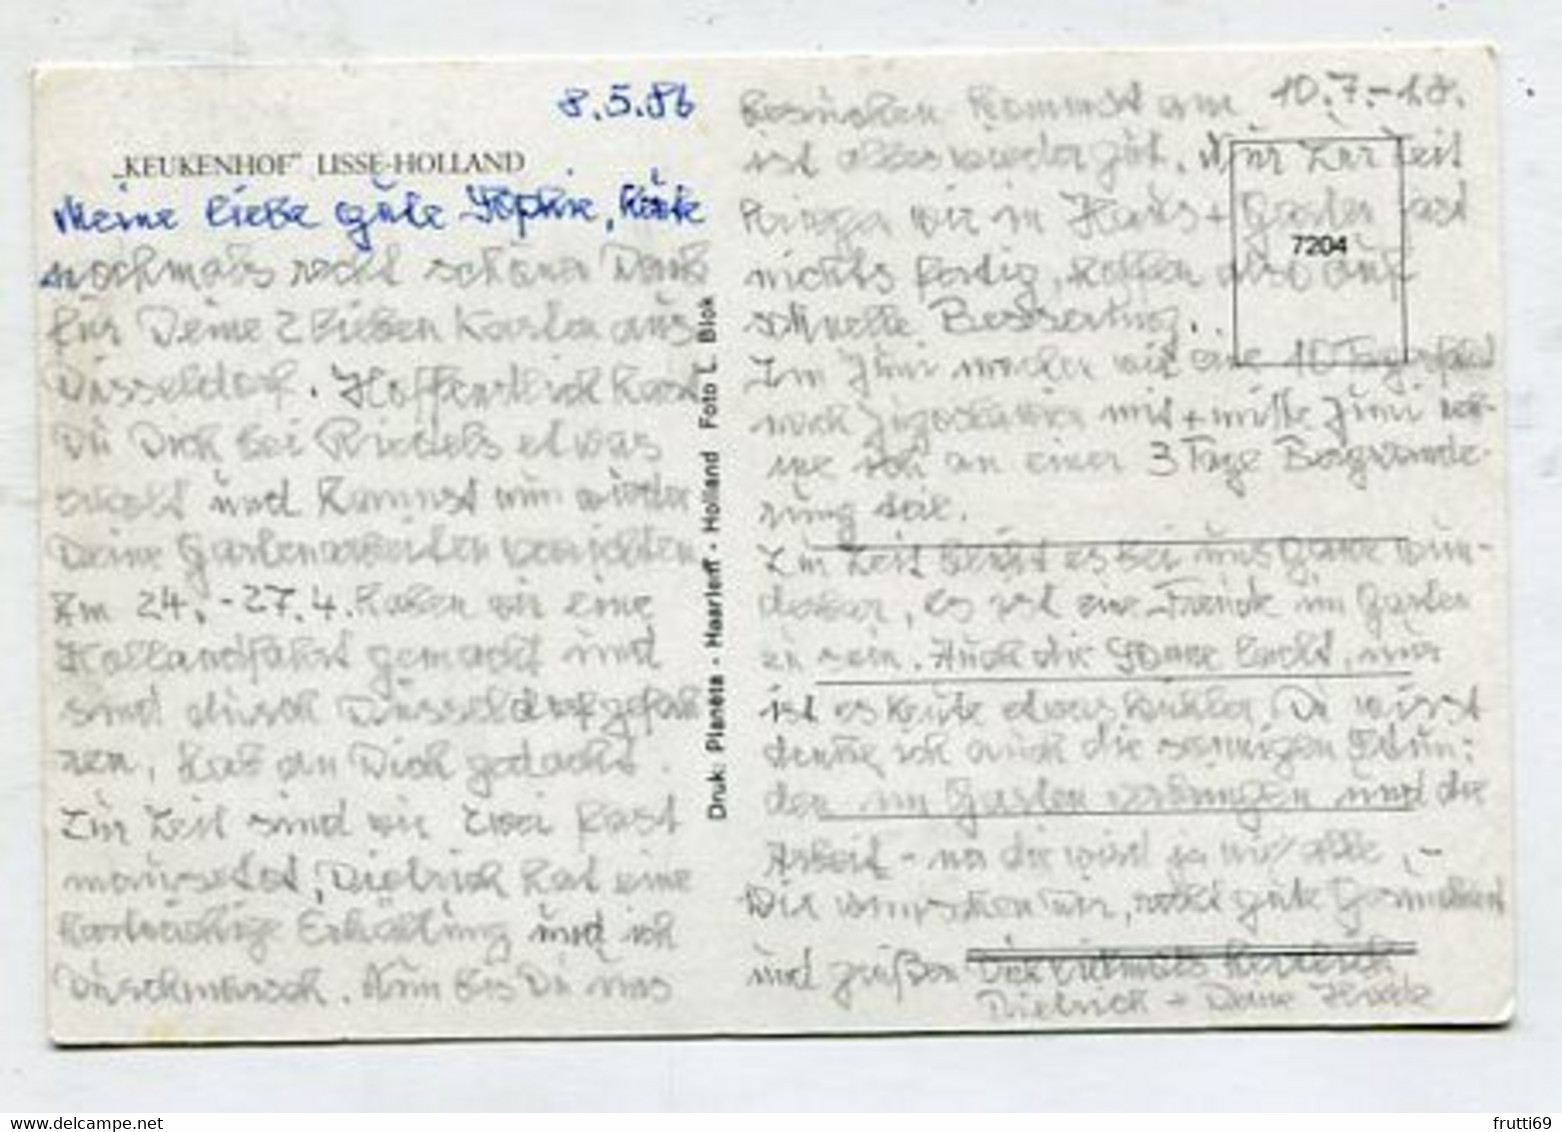 8.5.86
„KEUKENHOF" LISSE-HOLLAND
Meine liebe gute Sophie, heute
nochmals recht schönen Dank
für Deine 2 lieben Karten aus
Düsseldorf. Hoffentlich hast
Du Dich bei Riedels etwas
erholt und kannst nun wieder
Deine Gartenarbeiten verrichten
Im 24.-27.4. haben wir eine
Hollandfahrt gemacht und
sind durch Düsseldorf gefah
ren, hab an Dich gedacht.
Zur Zeit sind wir zwei fast
mausetot, Dietrich hat eine
hartnäckige Erkältung und ich
Durchmarsch. Nun bis Du uns
Druk: Planeta - Haarlem - Holland Foto L. Blok
besuchen kommst am 10.7.-18.
ist alles wieder gut. Nur zur Zeit
kriegen wir in Haus + Garten fast
nichts fertig, hoffen also auf
schnelle Besserung.
7204
Im Juni machen wir eine 10 Tagesfahrt
nach Jugoslawien mit + mitte Juni neh-
me ich an einer 3 Tage Bergwande-
rung teil.
Zur Zeit blüht es bei uns ganz wun-
derbar, es ist eine Freude im Garten
zu sein. Auch die Sonne lacht, nur
ist es heute etwas kühler. Du wirst
denke ich auch die sonnigen Stun-
den im Garten verbringen und die
Arbeit - na die wird ja nie alle,-
Dir wünschen wir recht gute Gesundheit
und grüßen Dich vielmals herzlich
Dietrich + Deine